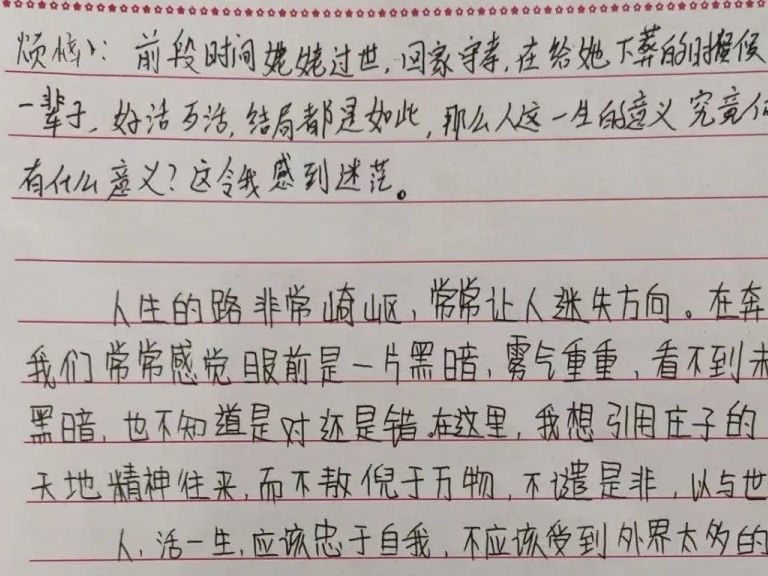 烦恼：前段时间姥姥过世，回家守孝，在给她下葬的时候
一辈子，好活歹活，结局都是如此，那么人这一生的意义 究竟
有什么意义？这令我感到迷茫。
人生的路非常崎岖，常常让人迷失方向。在奔
我们常常感觉眼前是一片黑暗，雾气重重，看不到未
黑暗，也不知道是对还是错。在这里，我想引用庄子的
天地精神往来，而不敖倪于万物，不谴是非，以与世
人，活一生，应该忠于自我，不应该受到外界太多的